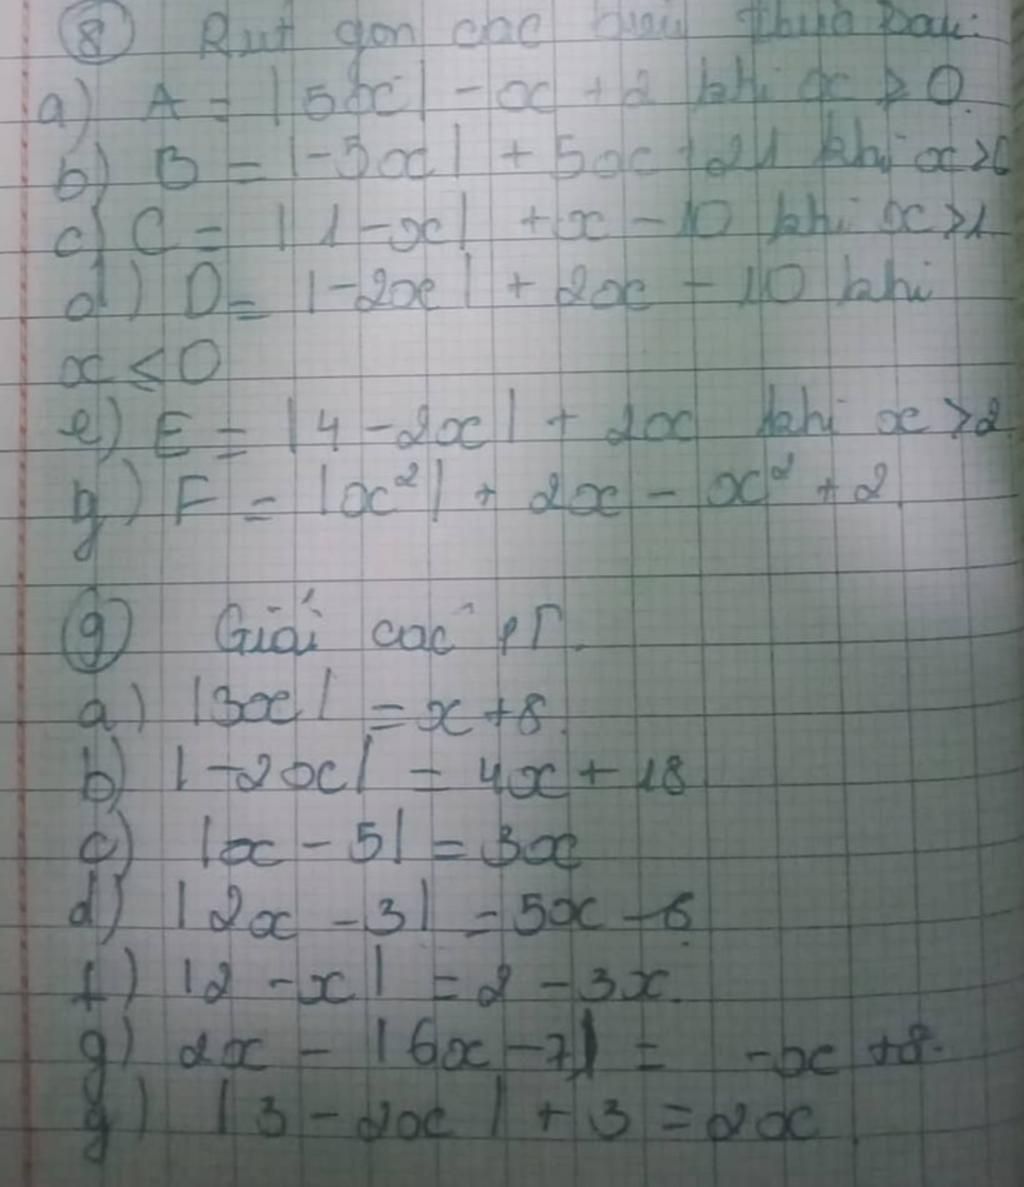 ⑧ Rút gọn các biểu thức sau:
a) A = |5x| - x + 2 khi x > 0
b) B = |-3x| + 5x + 21 khi x >
c) C = |1-x| + x - 10 khi x > 1
d) D = |-2x| + 2x - 10 khi
x ≤ 0
e) E = |4 - 2x| + 2x khi x > 2
g) F = |x²| + 2x - x² + 2
⑨ Giải các PT.
a) |3x| = x + 8
b) |-2x| = 4x + 18
c) |x - 5| = 3x
d) |2x - 3| = 5x - 6
f) |2 - x| = 2 - 3x.
g) 2x - |6x - 7| = -x + 8.
g) |3 - 2x| + 3 = 2x